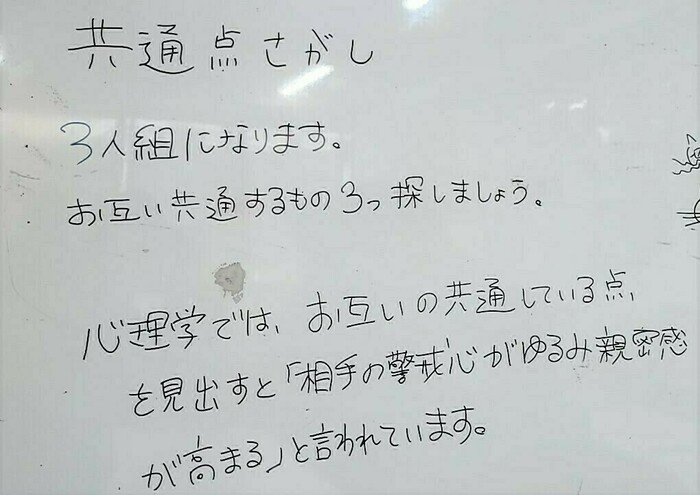 共通点さがし
3人組になります。
お互い共通するもの3つ探しましょう。
心理学では、お互いの共通している点、
を見出すと「相手の警戒心がゆるみ親密感
が高まる」と言われています。